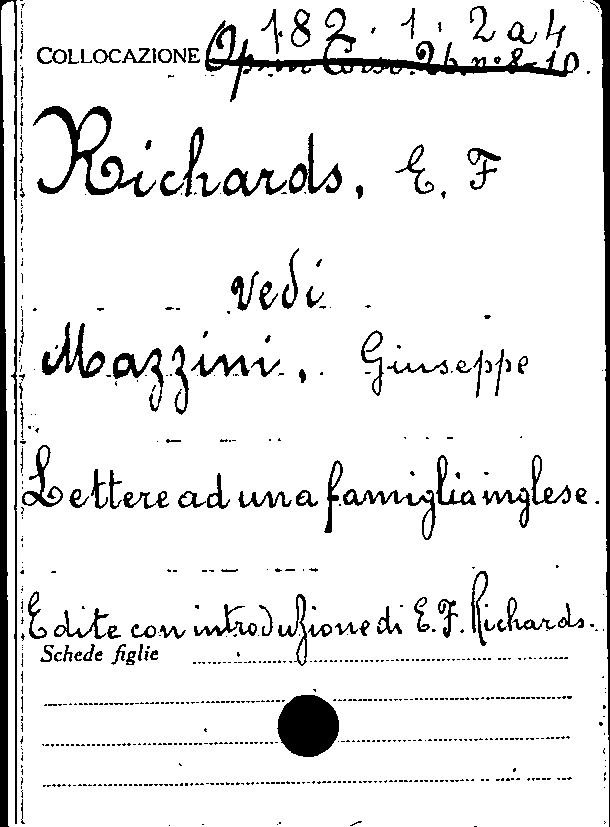 182. 1. 2 a 4
COLLOCAZIONE Op. in Corso. 26. n. 8-10.
Richards, E. F
vedi
Mazzini, Giuseppe
Lettere ad una famiglia inglese.
Edite con introduzione di E. F. Richards.
Schede figlie